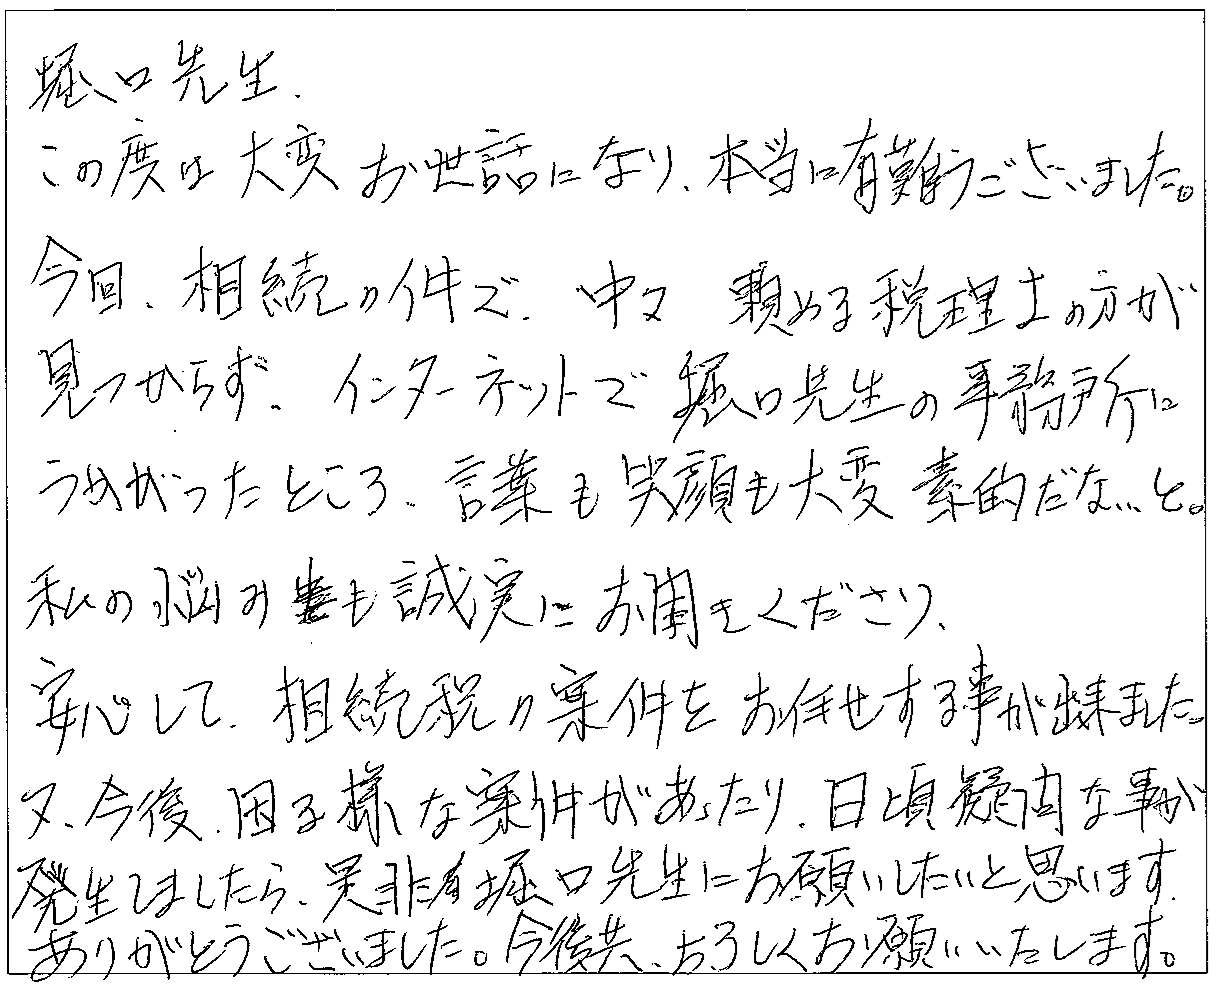 堀口先生.
この度は大変お世話になり、本当に有難うございました。
今回、相続の件で、中々 頼める税理士の方が
見つからず、インターネットで堀口先生の事務所に
うかがったところ、言葉も笑顔も大変素的だな…と。
私の悩みも誠実にお聞きくださり、
安心して、相続税の案件をお任せする事が出来ました。
又、今後、困る様な案件があったり、日頃疑問な事が
発生しましたら、是非堀口先生にお願いしたいと思います.
ありがとうございました。今後共、よろしくお願いいたします。